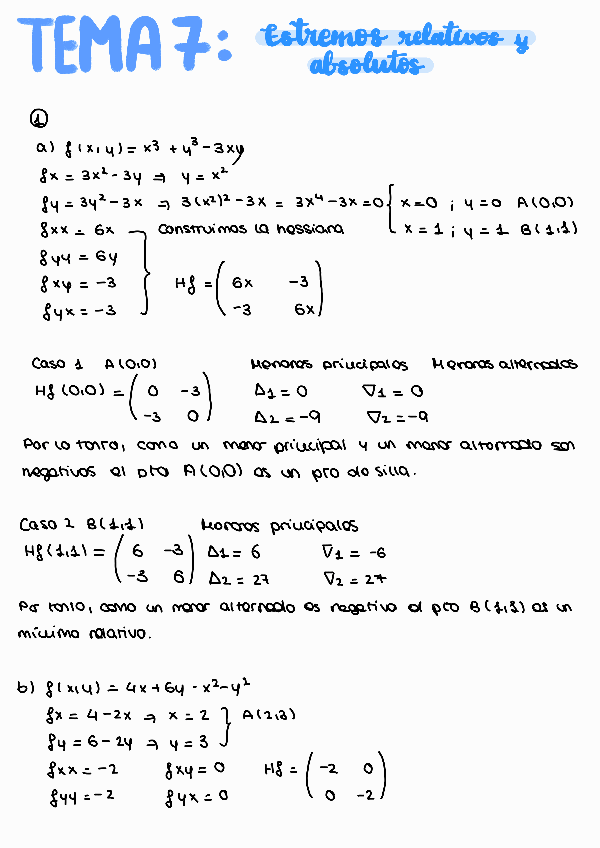 TEMA 7: Estremos relativos y
absolutos
1
a) f(x,y) = x³ + y³ - 3xy
fx = 3x² - 3y ⇒ y = x²
fy = 3y² - 3x ⇒ 3(x²)² - 3x = 3x⁴ - 3x = 0 { x=0 ; y=0 A(0,0)
x=1 ; y=1 B(1,1)
fxx = 6x Construimos la hessiana
fyy = 6y
fxy = -3 Hf = ( 6x -3
fyx = -3 -3 6x )
Caso 1 A(0,0) Menores principales Menores alternados
Hf(0,0) = ( 0 -3 Δ1 = 0 ∇1 = 0
-3 0 ) Δ2 = -9 ∇2 = -9
Por lo tanto, como un menor principal y un menor alternado son
negativos el pto A(0,0) es un pto de silla.
Caso 2 B(1,1) Menores principales
Hf(1,1) = ( 6 -3 Δ1 = 6 ∇1 = -6
-3 6 ) Δ2 = 27 ∇2 = 27
Por tanto, como un menor alternado es negativo el pto B(1,1) es un
mínimo relativo.
b) f(x,y) = 4x + 6y - x² - y²
fx = 4 - 2x ⇒ x = 2 } A(2,3)
fy = 6 - 2y ⇒ y = 3
fxx = -2 fxy = 0 Hf = ( -2 0
fyy = -2 fyx = 0 0 -2 )